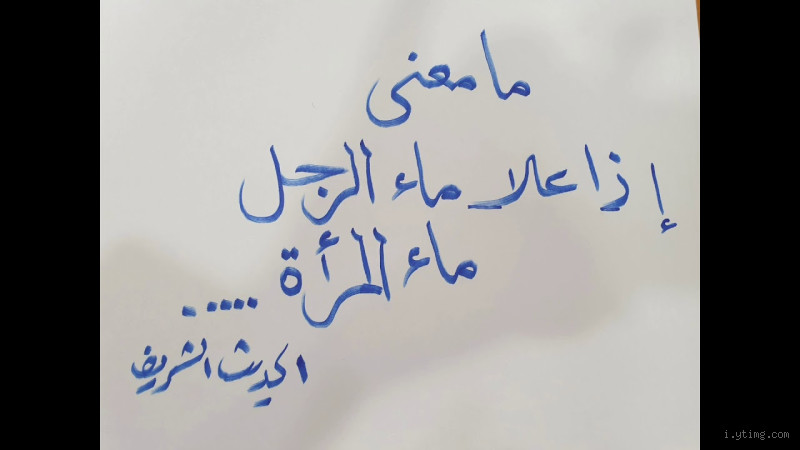 ما معنى
إذا علا ماء الرجل
ماء المرأة .....
الحديث الشريف
i.ytimg.com